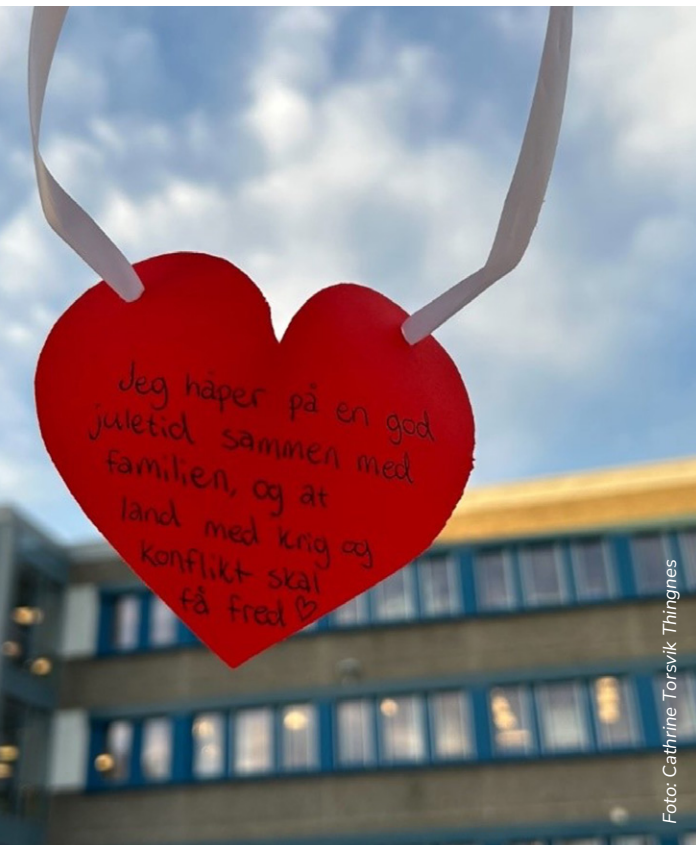 Jeg håper på en god
juletid sammen med
familien, og at
land med krig og
konflikt skal
få fred ♡
Foto: Cathrine Torsvik Thingnes